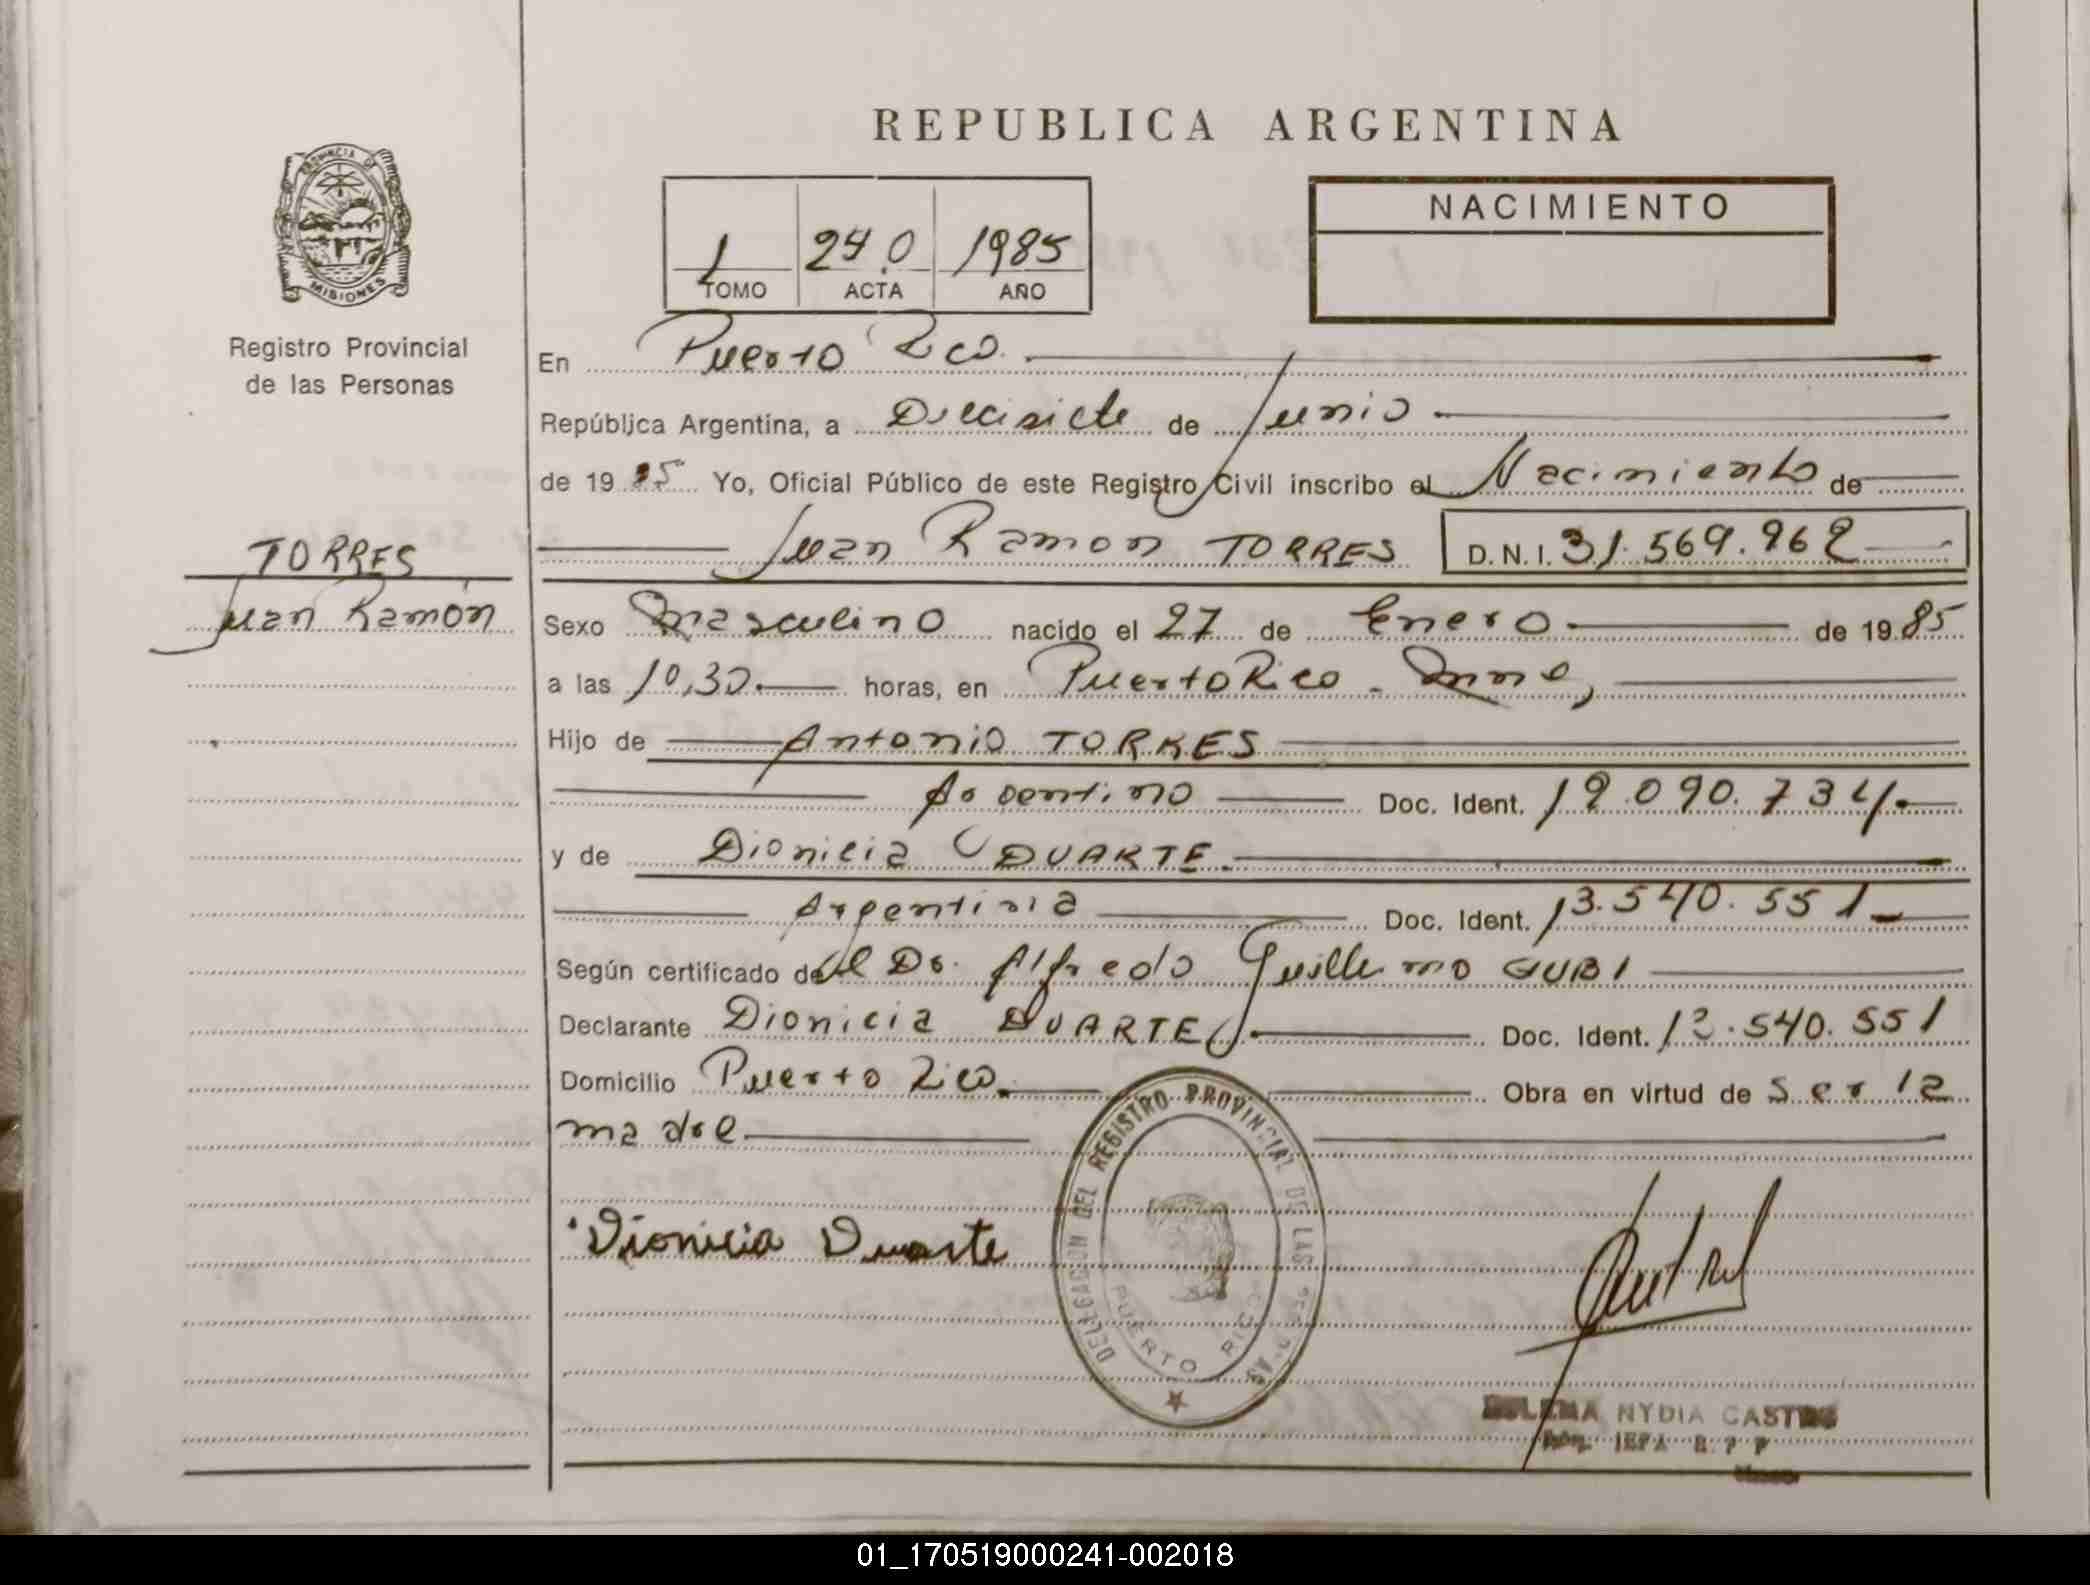 REPUBLICA ARGENTINA
PROVINCIA DE
MISIONES
Registro Provincial
de las Personas
1 240 1985
TOMO ACTA AÑO
NACIMIENTO
En Puerto Rico
República Argentina, a Diecisiete de Junio
de 1985 Yo, Oficial Público de este Registro Civil inscribo el Nacimiento de
Juan Ramon TORRES D.N.I. 31.569.962
TORRES
Juan Ramón
Sexo Masculino nacido el 27 de Enero de 1985
a las 10,30 horas, en Puerto Rico
Hijo de Antonio TORRES
Argentino Doc. Ident. 12.090.734
y de Dionicia DUARTE
Argentina Doc. Ident. 13.540.551
Según certificado del Dr. Alfredo Guillermo GUBI
Declarante Dionicia DUARTE Doc. Ident. 13.540.551
Domicilio Puerto Rico Obra en virtud de Ser la
madre
DELEGACION DEL REGISTRO PROVINCIAL DE LAS
PUERTO RICO
Dionicia Duarte
NYDIA CASTRO
01_170519000241-002018